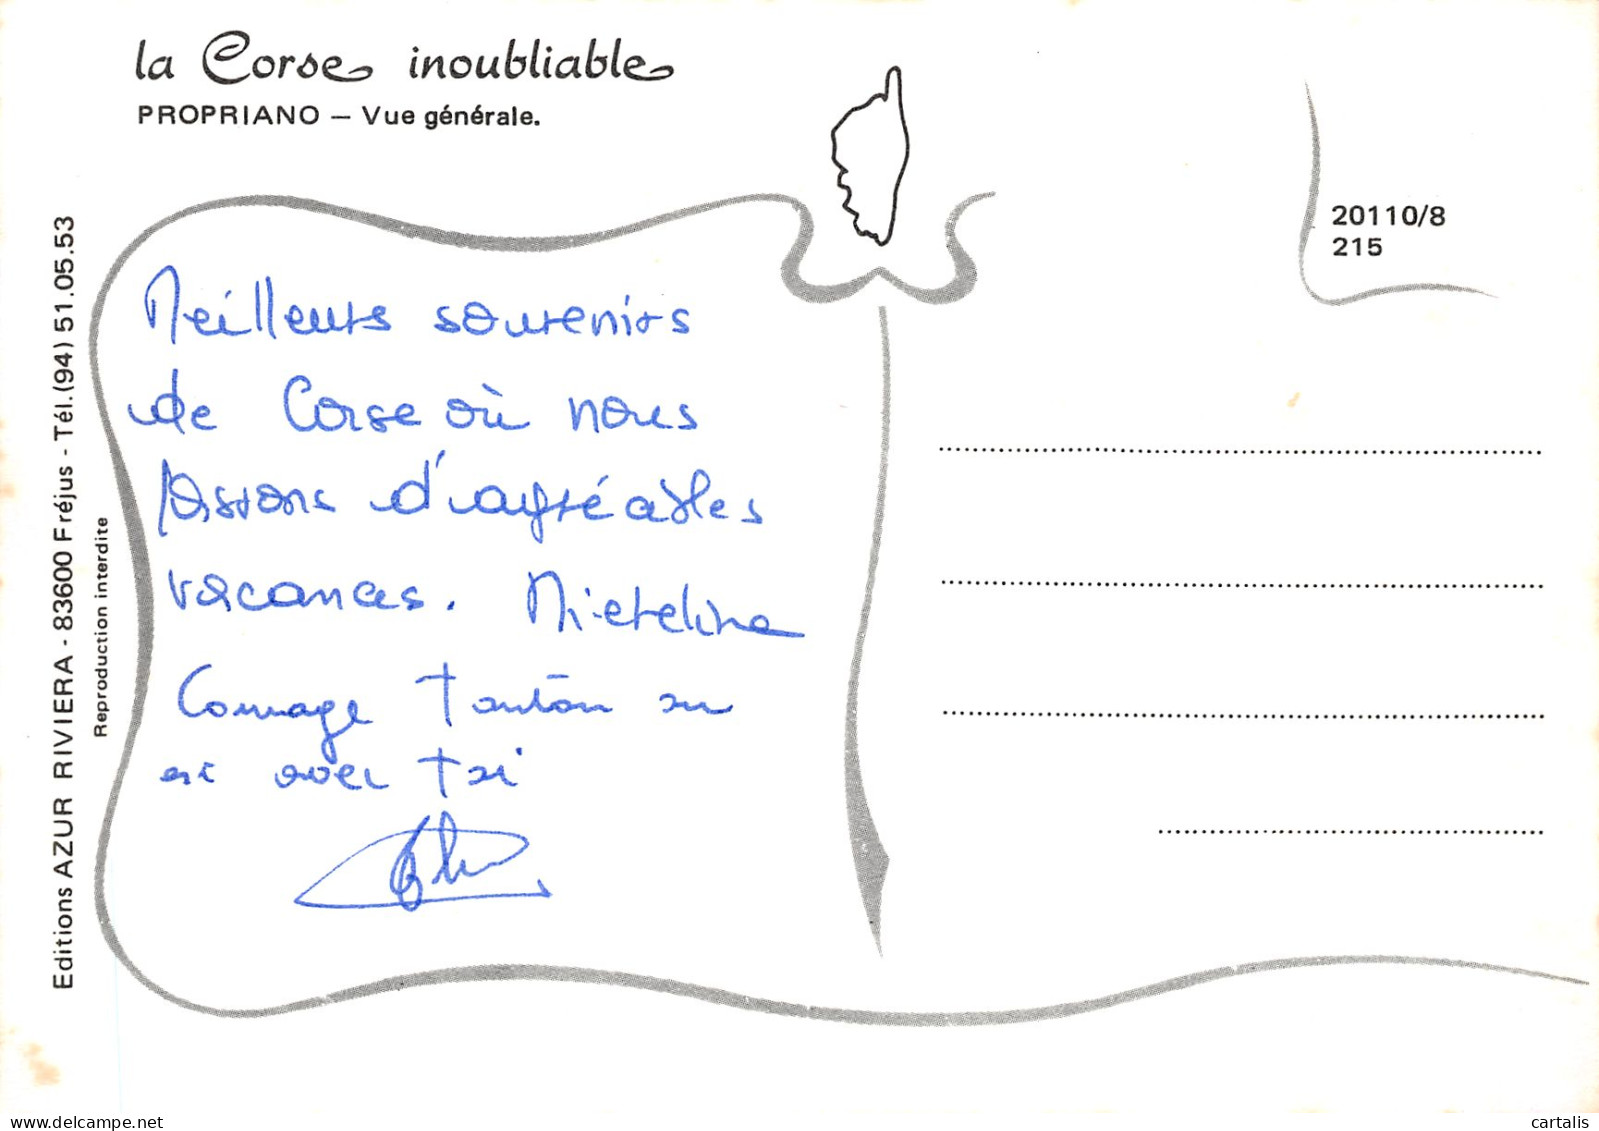 la Corse inoubliable
PROPRIANO — Vue générale.
20110/8
215
Editions AZUR RIVIERA - 83600 Fréjus - Tél.(94) 51.05.53
Reproduction interdite
Meilleurs souvenirs
de Corse où nous
passons d'agréables
vacances.
Courage Tonton on
est avec toi
cartalis
www.delcampe.net